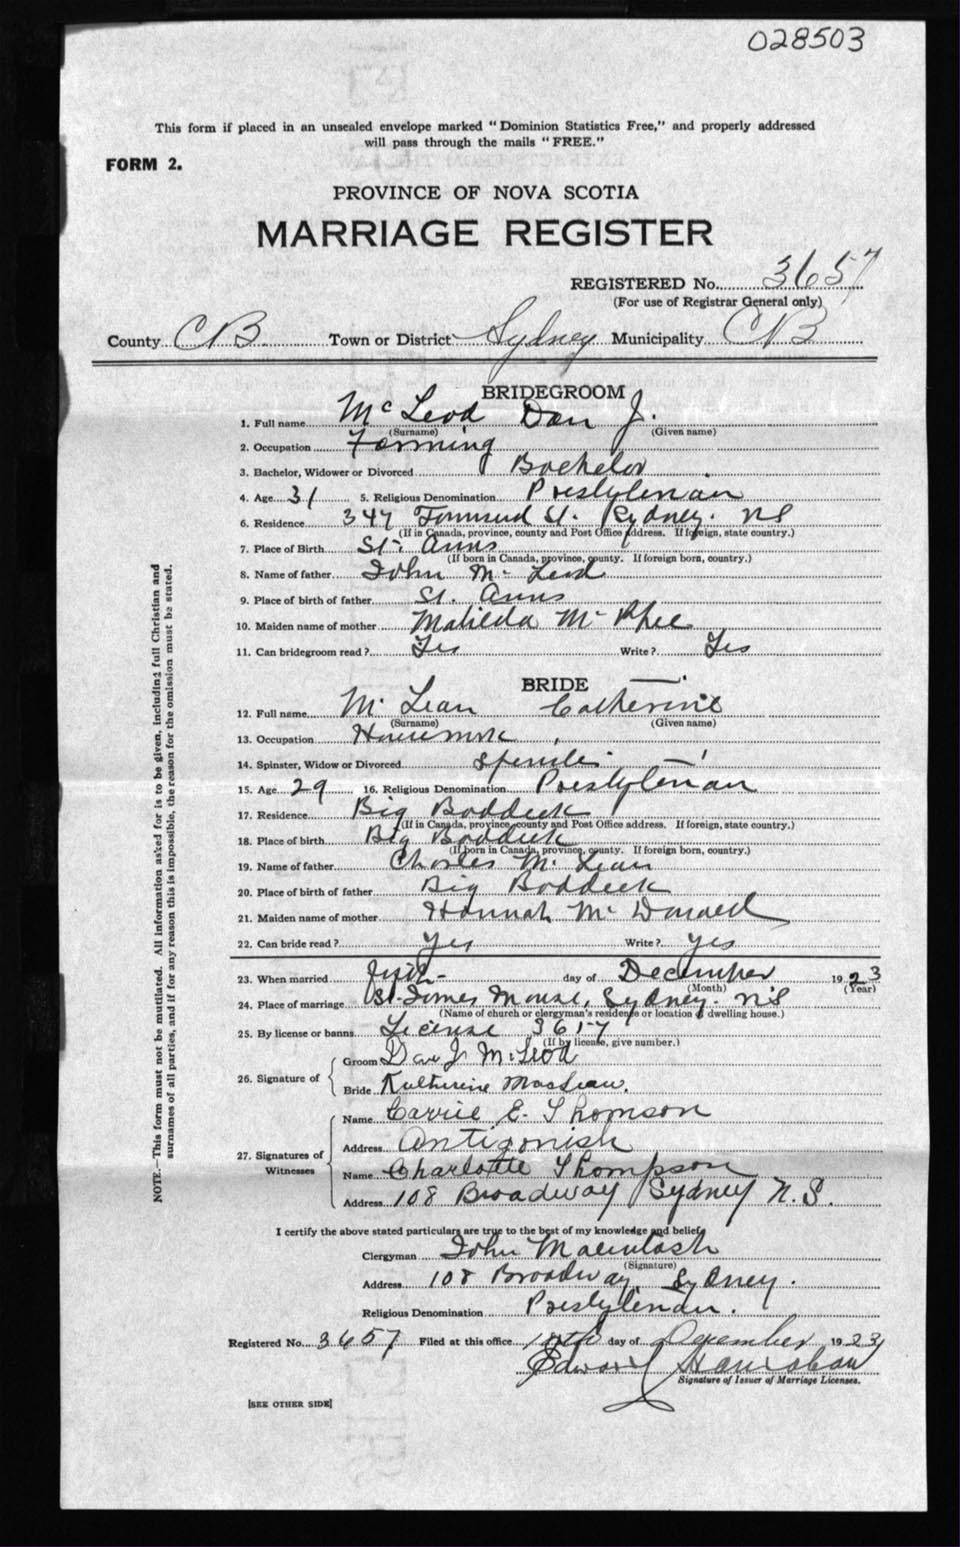 028503
This form if placed in an unsealed envelope marked "Dominion Statistics Free," and properly addressed
will pass through the mails "FREE."
FORM 2.
PROVINCE OF NOVA SCOTIA
MARRIAGE REGISTER
REGISTERED No. 3657
(For use of Registrar General only)
County CB. Town or District Sydney Municipality CB
BRIDEGROOM
1. Full name McLeod Dan J.
(Surname) (Given name)
2. Occupation Farming
3. Bachelor, Widower or Divorced Bachelor
4. Age 31 5. Religious Denomination Presbyterian
6. Residence 347 Townsend St. Sydney. NS
(If in Canada, province, county and Post Office address. If foreign, state country.)
7. Place of Birth St. Anns
(If born in Canada, province, county. If foreign born, country.)
8. Name of father John McLeod
9. Place of birth of father St. Anns
10. Maiden name of mother Matilda McPhee
11. Can bridegroom read? Yes Write? Yes
BRIDE
12. Full name McLean Catherine
(Surname) (Given name)
13. Occupation Housework
14. Spinster, Widow or Divorced
15. Age 29 16. Religious Denomination Presbyterian
17. Residence Big Baddeck
(If in Canada, province, county and Post Office address. If foreign, state country.)
18. Place of birth Big Baddeck
(If born in Canada, province, county. If foreign born, country.)
19. Name of father Charles McLean
20. Place of birth of father Big Baddeck
21. Maiden name of mother Hannah McDonald
22. Can bride read? Yes Write? Yes
23. When married day of December 1923
(Month) (Year)
24. Place of marriage St. James Manse, Sydney. NS
(Name of church or clergyman's residence or location of dwelling house.)
25. By license or banns License 3657
(If by license, give number.)
26. Signature of
Groom Dan J. McLeod
Bride Katherine MacLean.
27. Signatures of Witnesses
Name Carrie E. Thomson
Address Antigonish
Name Charlotte Thompson
Address 108 Broadway Sydney N.S.
I certify the above stated particulars are true to the best of my knowledge and belief.
Clergyman John Macintosh
(Signature)
Address 108 Broadway, Sydney.
Religious Denomination Presbyterian.
Registered No. 3657 Filed at this office day of December 1923
Edward
Signature of Issuer of Marriage Licenses.
[SEE OTHER SIDE]
NOTE.—This form must not be mutilated. All information asked for is to be given, including full Christian and
surnames of all parties, and if for any reason this is impossible, the reason for the omission must be stated.